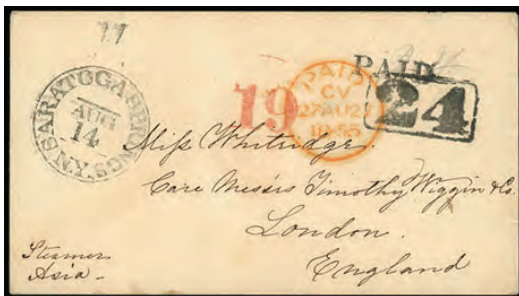 SARATOGA SPRINGS N.Y.
AUG
14
19
PAID
CV
27AU27
1855
PAID
24
Miss Whitridge.
Care Messrs Timothy Wiggin & Co.
London.
England
Steamer
Asia